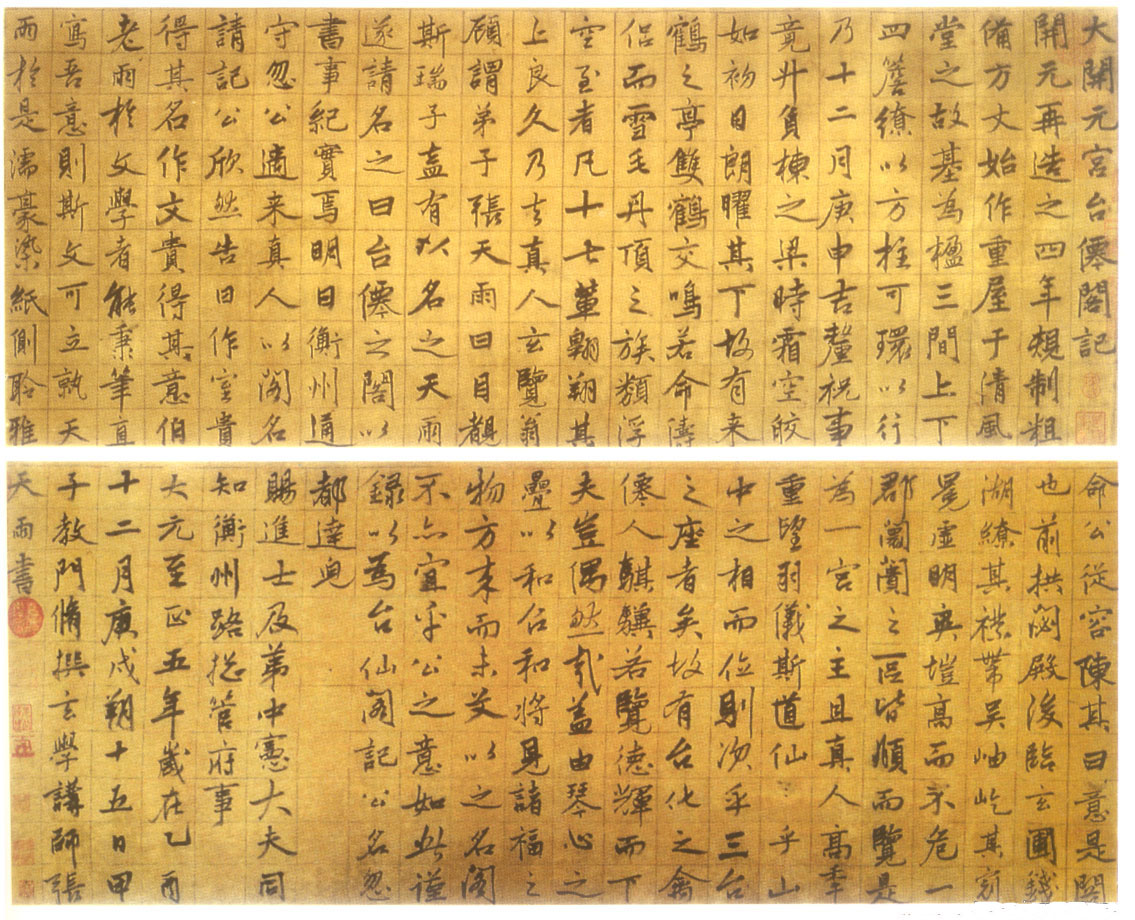 大開元宮台僊閣記
開元再造之四年規制粗
備方丈始作重屋于清風
堂之故基為楹三間上下
四簷繚以方柱可環以行
乃十二月庚申吉釐祝事
竟升負棟之梁時霜空皎
如初日朗曜其下故有来
鶴之亭雙鶴交鳴若命儔
侣而雪毛丹頂之族纇浮
空至者凡十七輩翱翔其
上良久乃去真人玄覽翁
顧謂弟子張天雨曰目覩
斯瑞子盍有以名之天雨
遂請名之曰台僊之閣以
書事紀實焉明日衡州通
守忽公適来真人以閣名
請記公欣然告曰作室貴
得其名作文貴得其意伯
老雨於文學者能秉筆直
寫吾意則斯文可立孰天
雨於是濡豪染紙側聆雅
命公従容陳其曰意是閣
也前拱閟殿後臨玄圃錢
湖繚其襟帶吴岫屹其
冕虚明爽塏高而不危一
郡闤闠之區皆頫而覽是
為一宫之主且真人高
重望羽儀斯道仙〻乎山
中之相而位次乎三台
之座者矣故有台化之禽
僊人騏驥若覽德輝而下
夫豈偶然哉盖由琴心之
疊以和召和将見諸福之
物方来而未艾以之名閣
不亦宜乎公之意如此谨
録以為台仙阁記公名忽
都達皃
賜進士及第中憲大夫同
知衡州路捴管府事
大元至正五年歲在乙酉
十二月庚戌朔十五日甲
子教門脩撰玄學講師張
天雨書